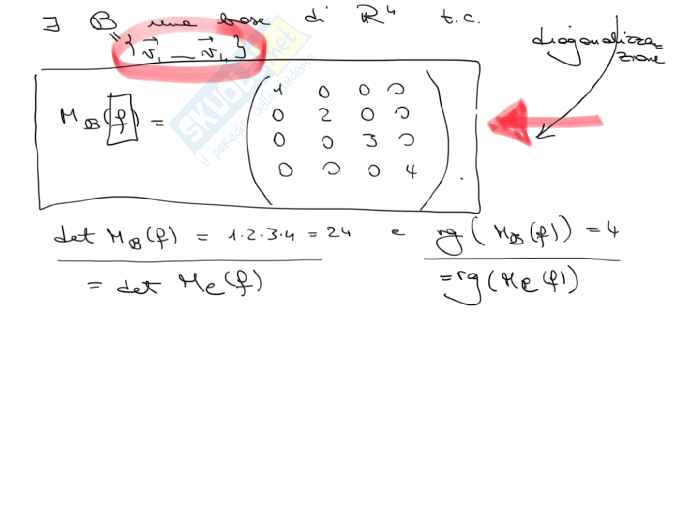 ∃ B una base di R⁴ t.c.
{ v₁ — v₄ }
diagonalizza=
zione
M_B(f) =
1 0 0 0
0 2 0 0
0 0 3 0
0 0 0 4
det M_B(f) = 1·2·3·4 = 24 e rg(M_B(f)) = 4
= det M_e(f) = rg(M_e(f))
SKUOLA.net